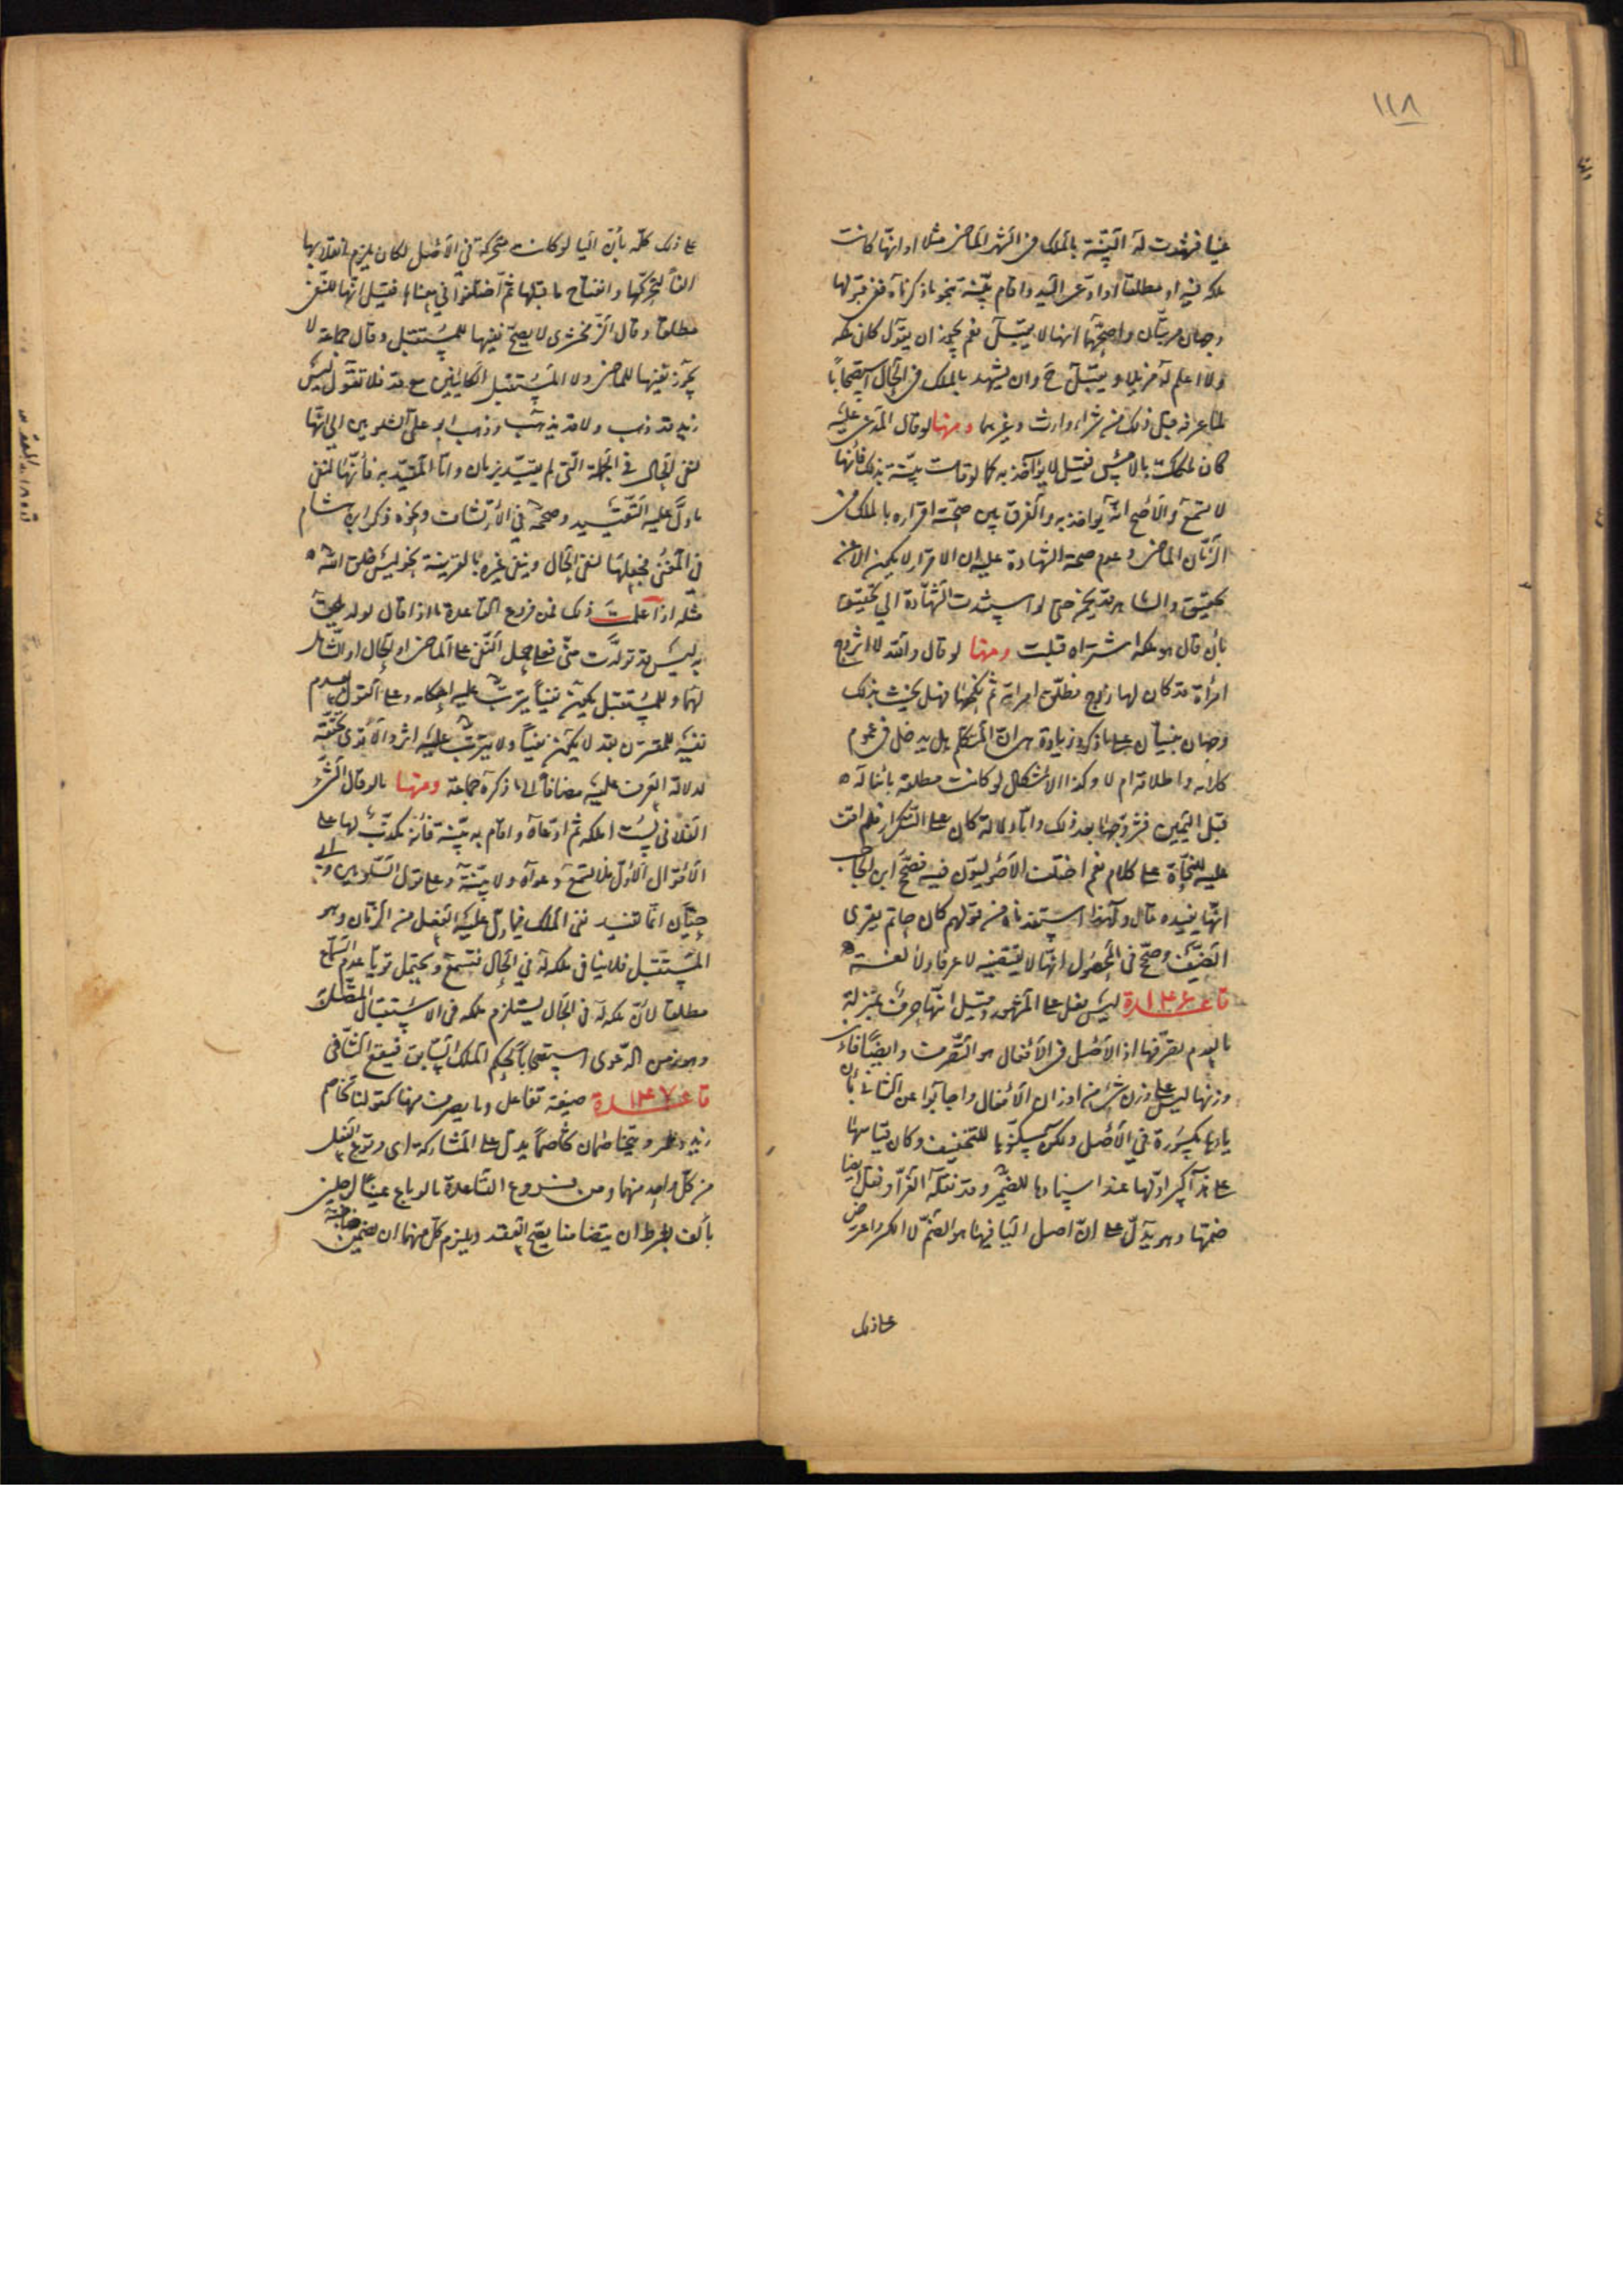 ١١٨
عينا فشهدت له البينة بالملك في الشهر الماضي مثلا او انها كانت
ملكه فيه او مطلقا او ادعى اليد واقام بينة بنحو ما ذكرناه ففي قبولها
وجهان مرتبان واصحهما انها لا يقبل نعم يجوز ان يقول كان ملكه
ولا اعلم له مزيلا ويقبل ح وان يشهد بالملك في الحال استصحابا
لما عرفه قبل ذلك من شراء وارث وغيرهما ومنها لو قال المدعى عليه
كان ملكك بالامس فقيل لا يؤاخذ به كما لو قامت بينة بذلك فانها
لا تسمع والاصح انه يؤاخذ به والفرق بين صحة اقراره بالملك في
الزمان الماضي وعدم صحة الشهادة عليه ان الاقرار لا يكون الا عن
تحقيق والشاهد قد يخمن حتى لو استندت الشهادة الى تحقيق
بأن قال هو ملكه اشتراه قبلت ومنها لو قال والله لا اتزوج
امرأة قد كان لها زوج فطلق امرأته ثم نكحها فهل يحنث بذلك
وجهان مبنيان على ما ذكر وزيادة هي ان المتكلم هل يدخل في عموم
كلامه واطلاقه ام لا وكذا الاشكال لو كانت مطلقة بائنا له
قبل اليمين فتزوجها بعد ذلك واما دلالة كان على التكرار فلم اقف
عليه للنحاة على كلام نعم اختلف الاصوليون فيه فصحح ابن الحاجب
انها يفيده قال ولهذا استفدناه من قولهم كان حاتم يقري
الضيف وصحح في المحصول انها لا يقتضيه لا عرفا ولا لغة
قاعدة ١٤٦ ليس فعل على المشهور وقيل انها حرف بمنزلة
ما لعدم تصرفها اذ الاصل في الافعال هو التصرف وايضا فان
وزنها ليس على وزن شيء من اوزان الافعال واجابوا عن الثاني بأن
ياءها مكسورة في الاصل ولكن سكنوها للتخفيف وكان قياسها
على هذا كسر اولها عند اسنادها للضمير وقد نقله الفراء ونقل ايضا
ضمها وهو يدل على ان اصل اليا فيها هو الضم لا الكسر واعترض
على ذلك
على ذلك كله بأن اليا لو كانت متحركة في الاصل لكان يلزم انقلابها
الفا لتحركها وانفتاح ما قبلها ثم اختلفوا في معناها فقيل انها للنفي
مطلقا وقال الزمخشري لا يصح نفيها للمستقبل وقال جماعة لا
يجوز نفيها للماضي ولا المستقبل الكائنين مع قد فلا تقول ليس
زيد قد ذهب ولا قد يذهب وذهب ابو على الشلوبين الى انها
لنفي الحال في الجملة التي لم يقيد بزمان واما المقيد به فانها لنفي
ما دل عليه التقييد وصححه في الارتشاف ونحوه ذكر ابن هشام
في المغني فجعلها لنفي الحال وينفي غيره بالقرينة نحو ليس خلق الله
مثله اذا علمت ذلك فمن فروع القاعدة ما اذا قال لولد يلحق
به ليس قد تولدت مني فعلى جعل النفي على الماضي او الحال او الشامل
لهما وللمستقبل يكون نفيا يترتب عليه احكامه وعلى القول بعدم
نفيه للمقترن بقد لا يكون نفيا ولا يترتب عليه اثر والاقوى تحققه
لدلالة العرف عليه مضافا الى ما ذكره جماعة ومنها ما لو قال الشيء
الفلاني لست املكه ثم ادعاه واقام به بينة فانه مكذب لها على
الاقوال الاول فلا تسمع دعواه ولا بينته وعلى قول الشلوبين وابن
حيان انما تفيد نفي الملك فيما دل عليه الفعل من الزمان وهو
المستقبل فلا ينافي ملكه له في الحال فتسمع ويحتمل قويا عدم السماع
مطلقا لان ملكه له في الحال يستلزم ملكه في الاستقبال المتصل
وهو زمن الدعوى استصحابا لحكم الملك السابق فيقع التنافي
قاعدة ١٤٧ صيغة تفاعل وما يصرف منها كقولنا تخاصم
زيد وعمرو ويتخاصمان تخاصما يدل على المشاركة اى وقوع الفعل
من كل واحد منهما ومن فروع القاعدة ما لو باع عينا لرجلين
بألف بشرط ان يتضامنا يصح العقد ويلزم كل منهما ان يضمن صاحبه